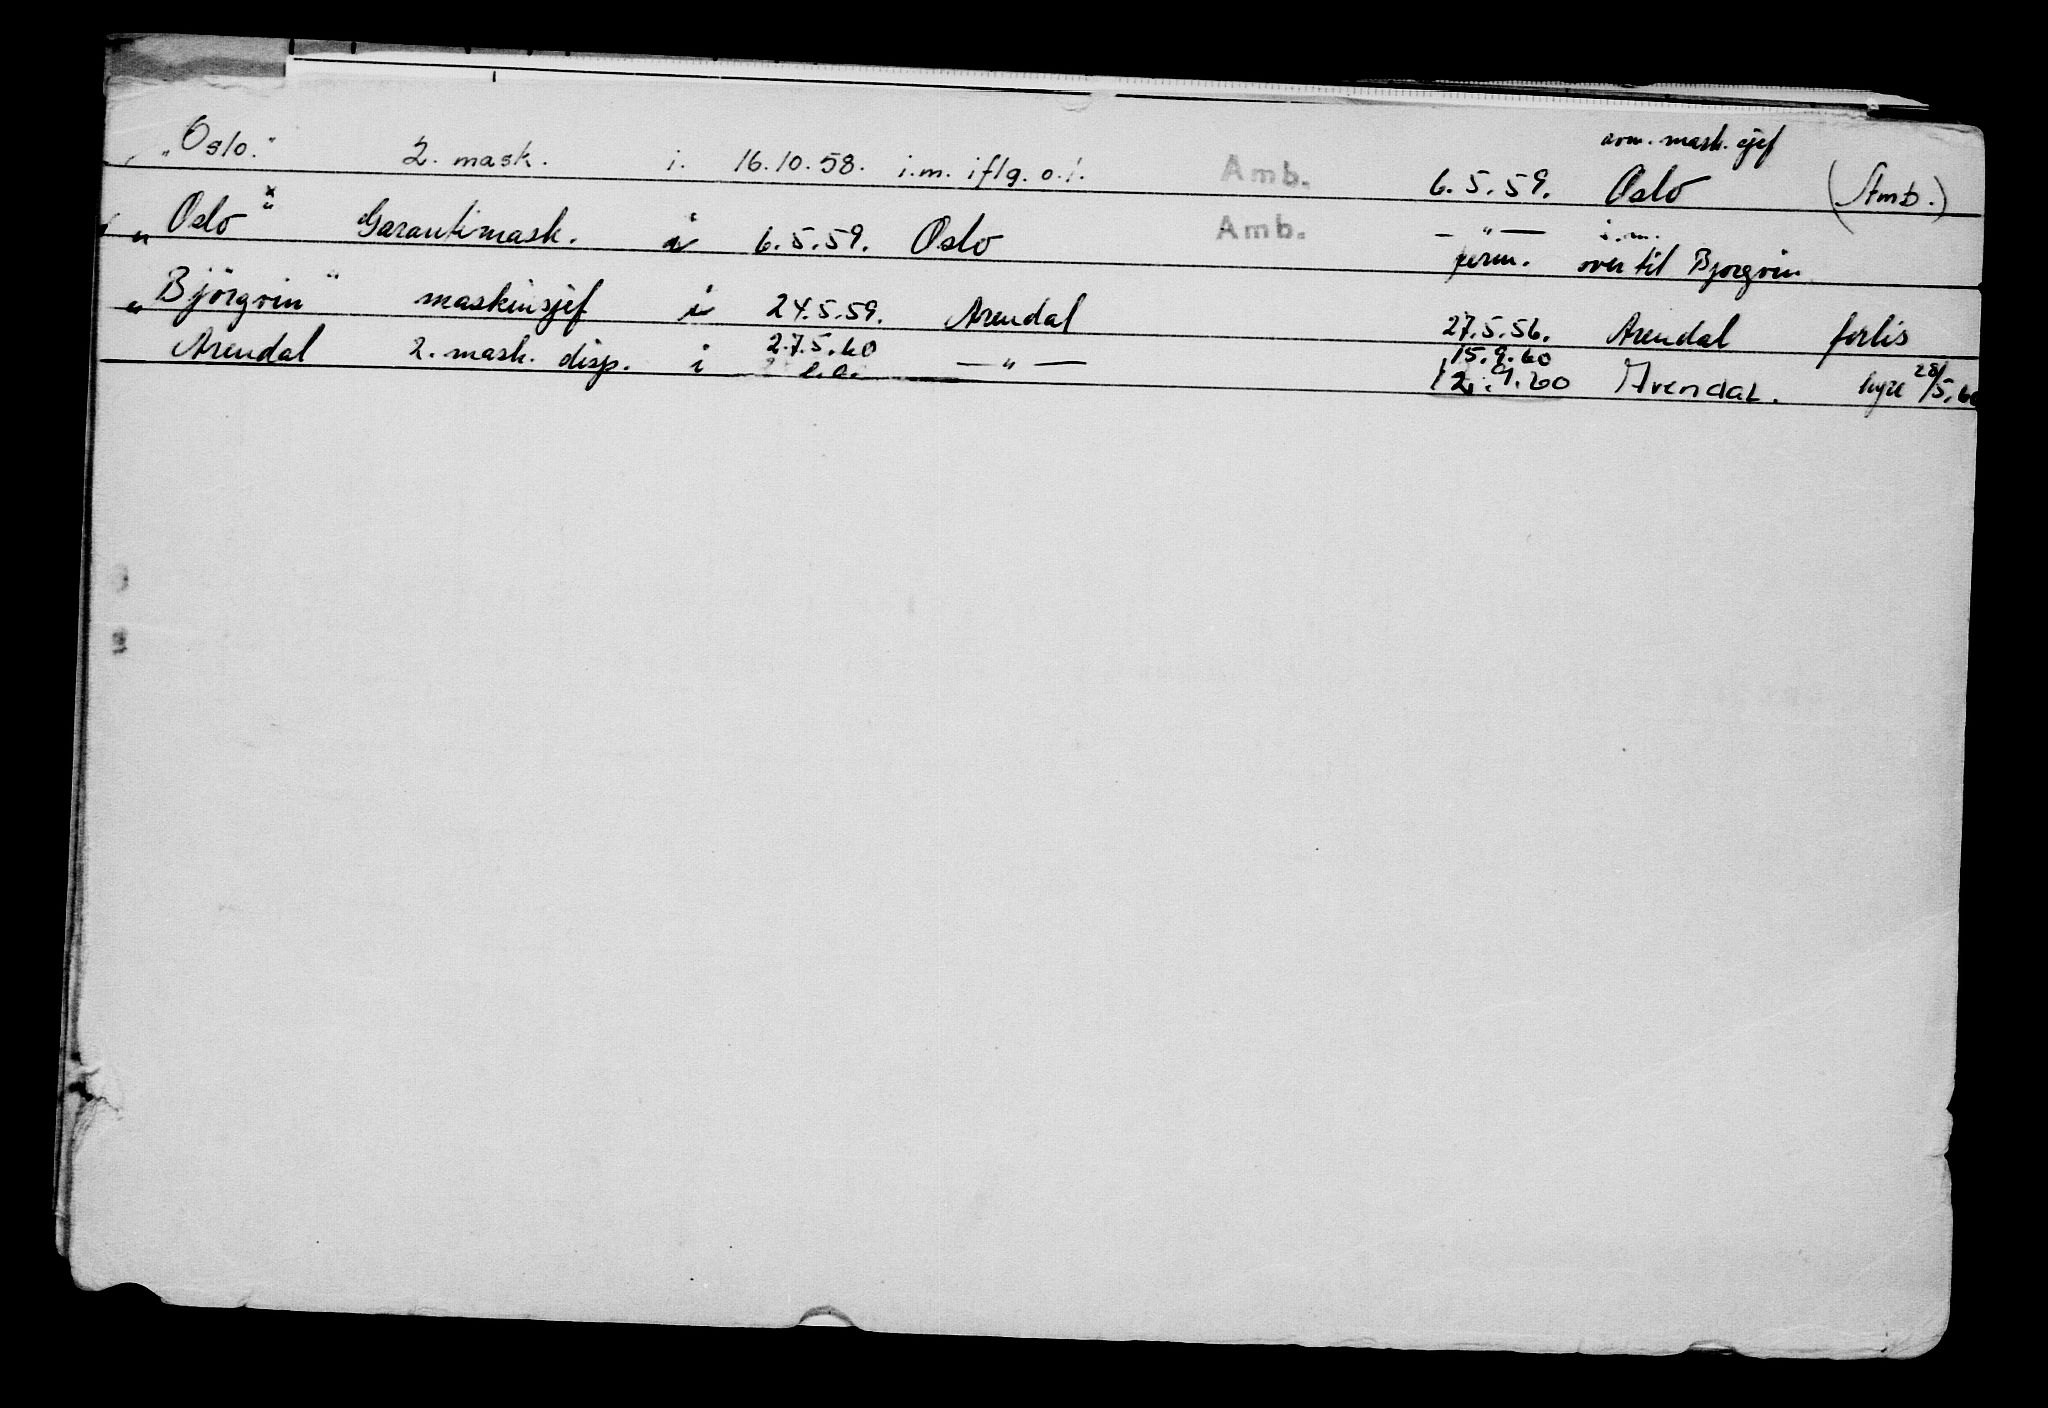 mask. sjef
"Oslo." 2. mask. i. 16.10.58. i.m. iflg. o.l. Amb. 6.5.59. Oslo (Amb.)
"Oslo" x Garantimask. i 6.5.59. Oslo Amb. — " — i.m.
perm. over til Bjorgvin
"Björgvin" maskinsjef i 24.5.59. Arendal 27.5.56. Arendal forlis
Arendal 2. mask. disp. i 27.5.60 — " — 15.9.60
12.9.60 Arendal. hyre 28/5.60